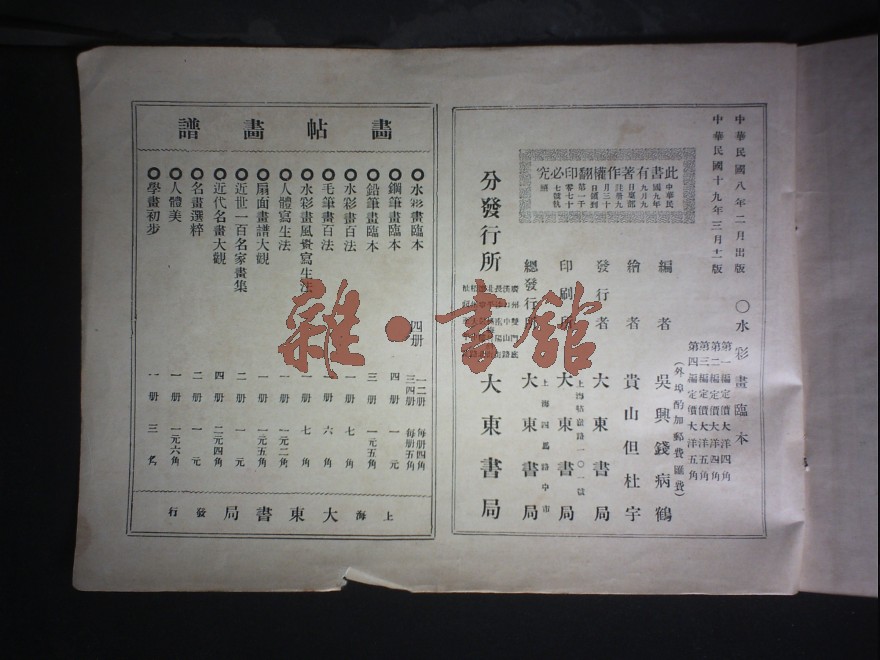 中華民國八年二月出版
中華民國十九年三月十二版
○水彩畫臨本
第一編定價大洋四角
第二編定價大洋四角
第三編定價大洋五角
第四編定價大洋五角
(外埠酌加郵費匯費)
編者 吳興錢病鶴
繪者 貴山但杜宇
發行者 大東書局
上海
印刷所 大東書局
上海四馬路中市
總發行所 大東書局
分發行所 大東書局
此書有著作權翻印必究
中華民國九年九月九日稟部註冊九月三十日領到第一千零七十七號執照
畫帖畫譜
水彩畫臨本 四册 一二册 每册四角
三四册 每册五角
鋼筆畫臨本 四册 一元
鉛筆畫臨本 三册 一元五角
水彩畫百法 一册 七角
毛筆畫百法 一册 六角
水彩畫風景寫生法 一册 七角
人體寫生法 一册 一元二角
扇面畫譜大觀 一册 一元五角
近世一百名家畫集 二册 一元
近代名畫大觀 四册 二元四角
名畫選粹 二册 一元
人體美 一册 一元六角
學畫初步 一册 三角
上海大東書局發行
雜·書館